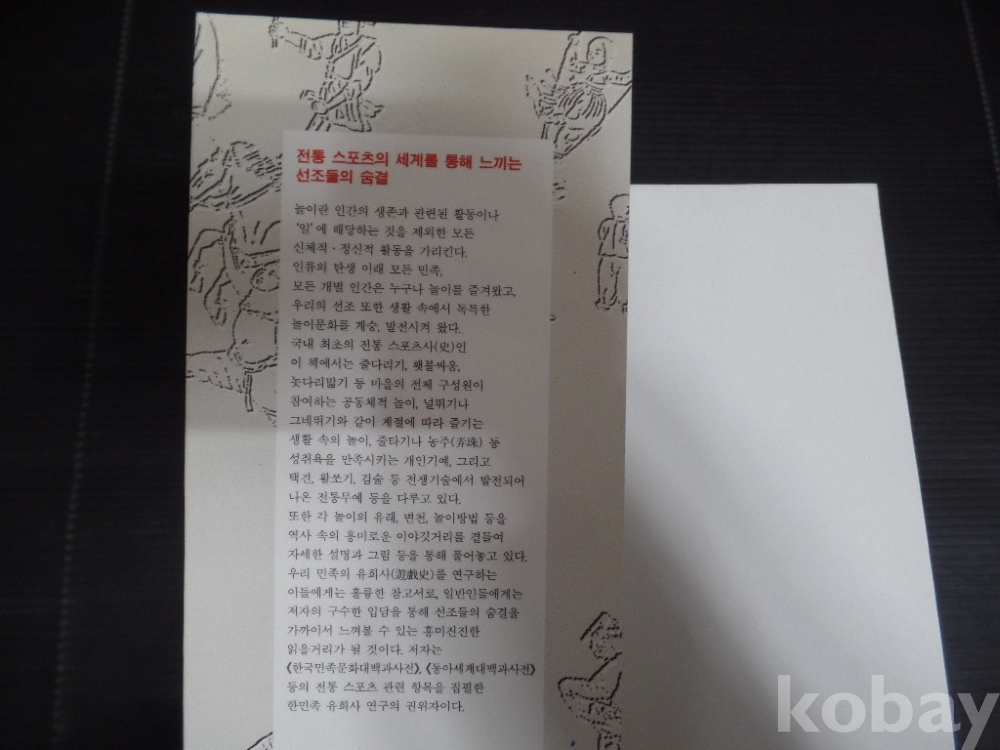 전통 스포츠의 세계를 통해 느끼는
선조들의 숨결
놀이란 인간의 생존과 관련된 활동이나
'일'에 해당하는 것을 제외한 모든
신체적·정신적 활동을 가리킨다.
인류의 탄생 이래 모든 민족,
모든 개별 인간은 누구나 놀이를 즐겨왔고,
우리의 선조 또한 생활 속에서 독특한
놀이문화를 계승, 발전시켜 왔다.
국내 최초의 전통 스포츠사(史)인
이 책에서는 줄다리기, 횃불싸움,
놋다리밟기 등 마을의 전체 구성원이
참여하는 공동체적 놀이, 널뛰기나
그네뛰기와 같이 계절에 따라 즐기는
생활 속의 놀이, 줄타기나 농주(弄珠) 등
성취욕을 만족시키는 개인기예, 그리고
택견, 활쏘기, 검술 등 전쟁기술에서 발전되어
나온 전통무예 등을 다루고 있다.
또한 각 놀이의 유래, 변천, 놀이방법 등을
역사 속의 흥미로운 이야깃거리를 곁들여
자세한 설명과 그림 등을 통해 풀어놓고 있다.
우리 민족의 유희사(遊戱史)를 연구하는
이들에게는 훌륭한 참고서로, 일반인들에게는
저자의 구수한 입담을 통해 선조들의 숨결을
가까이서 느껴볼 수 있는 흥미진진한
읽을거리가 될 것이다. 저자는
《한국민족문화대백과사전》, 《동아세계대백과사전》
등의 전통 스포츠 관련 항목을 집필한
한민족 유희사 연구의 권위자이다.
kobay